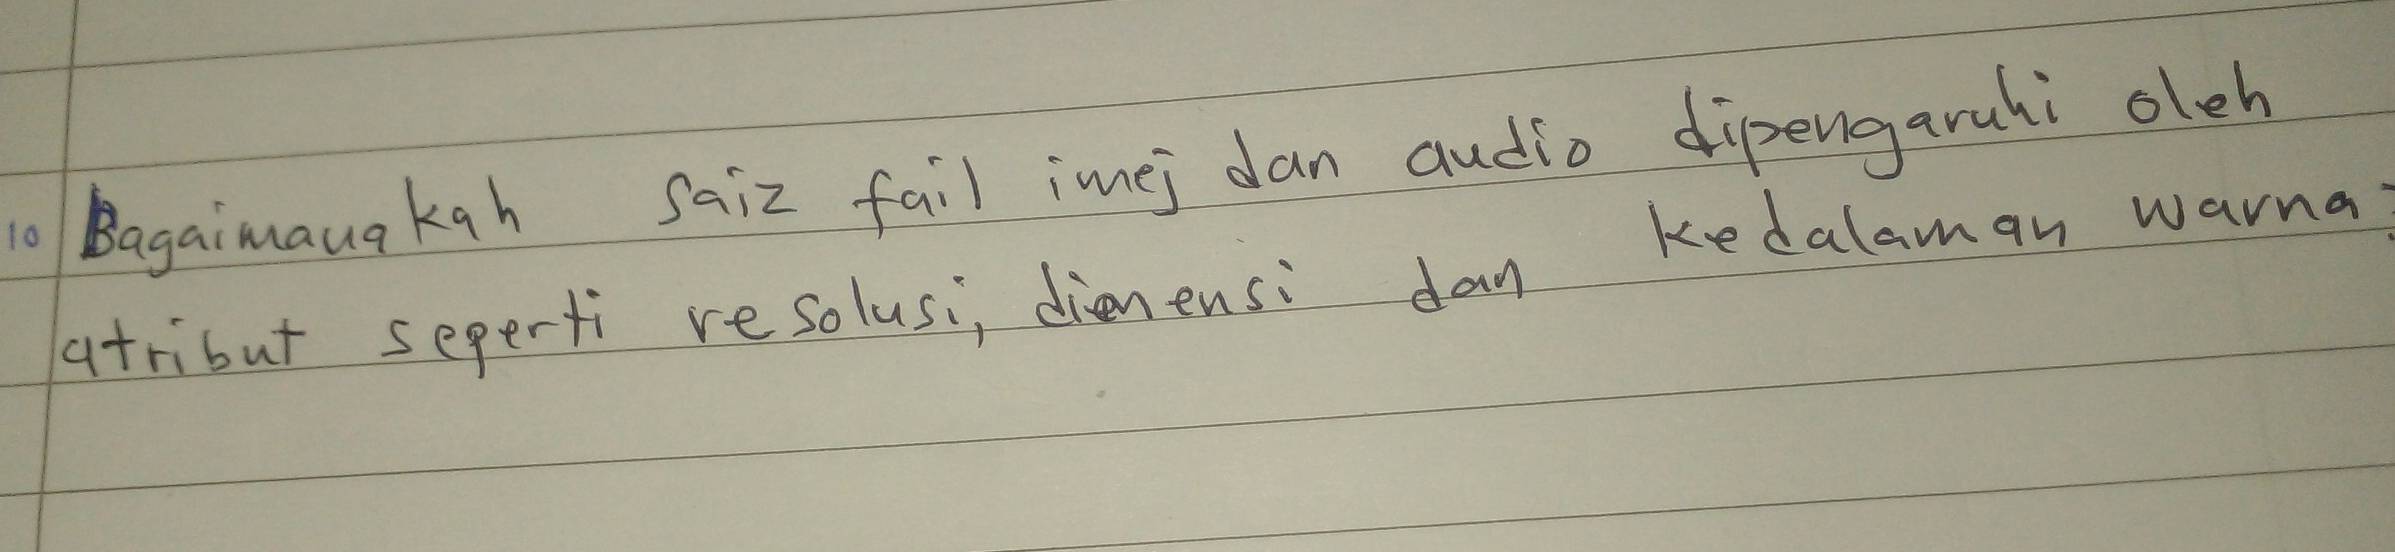 10 Bagaimanakah saiz fail imej dan audio dipengaruhi oleh
atribut seperti resolusi, dimensi dan kedalaman warna?